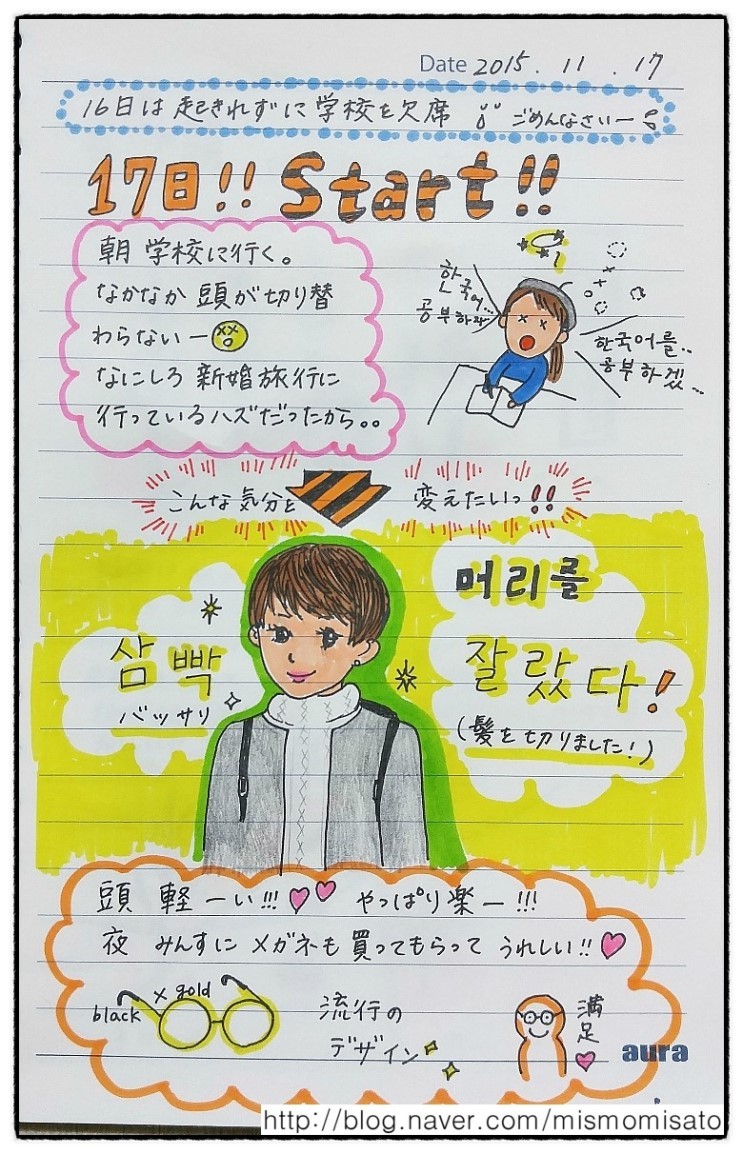 Date 2015.11.17
16日は起きれずに学校を欠席 ごめんなさいー
17日!! Start!!
朝 学校に行く。
なかなか 頭が切り替
わらないー
なにしろ 新婚旅行に
行っているハズだったから。。
한국어...
공부하자
한국어를..
공부하겠...
こんな気分を 変えたいっ!!
머리를
잘랐다!
(髪を切りました!)
삼빡
バッサリ
頭 軽ーい!!! やっぱり楽ー!!!
夜 みんすに メガネも 買ってもらって うれしい!!
black x gold
流行の
デザイン
満足
aura
http://blog.naver.com/mismomisato